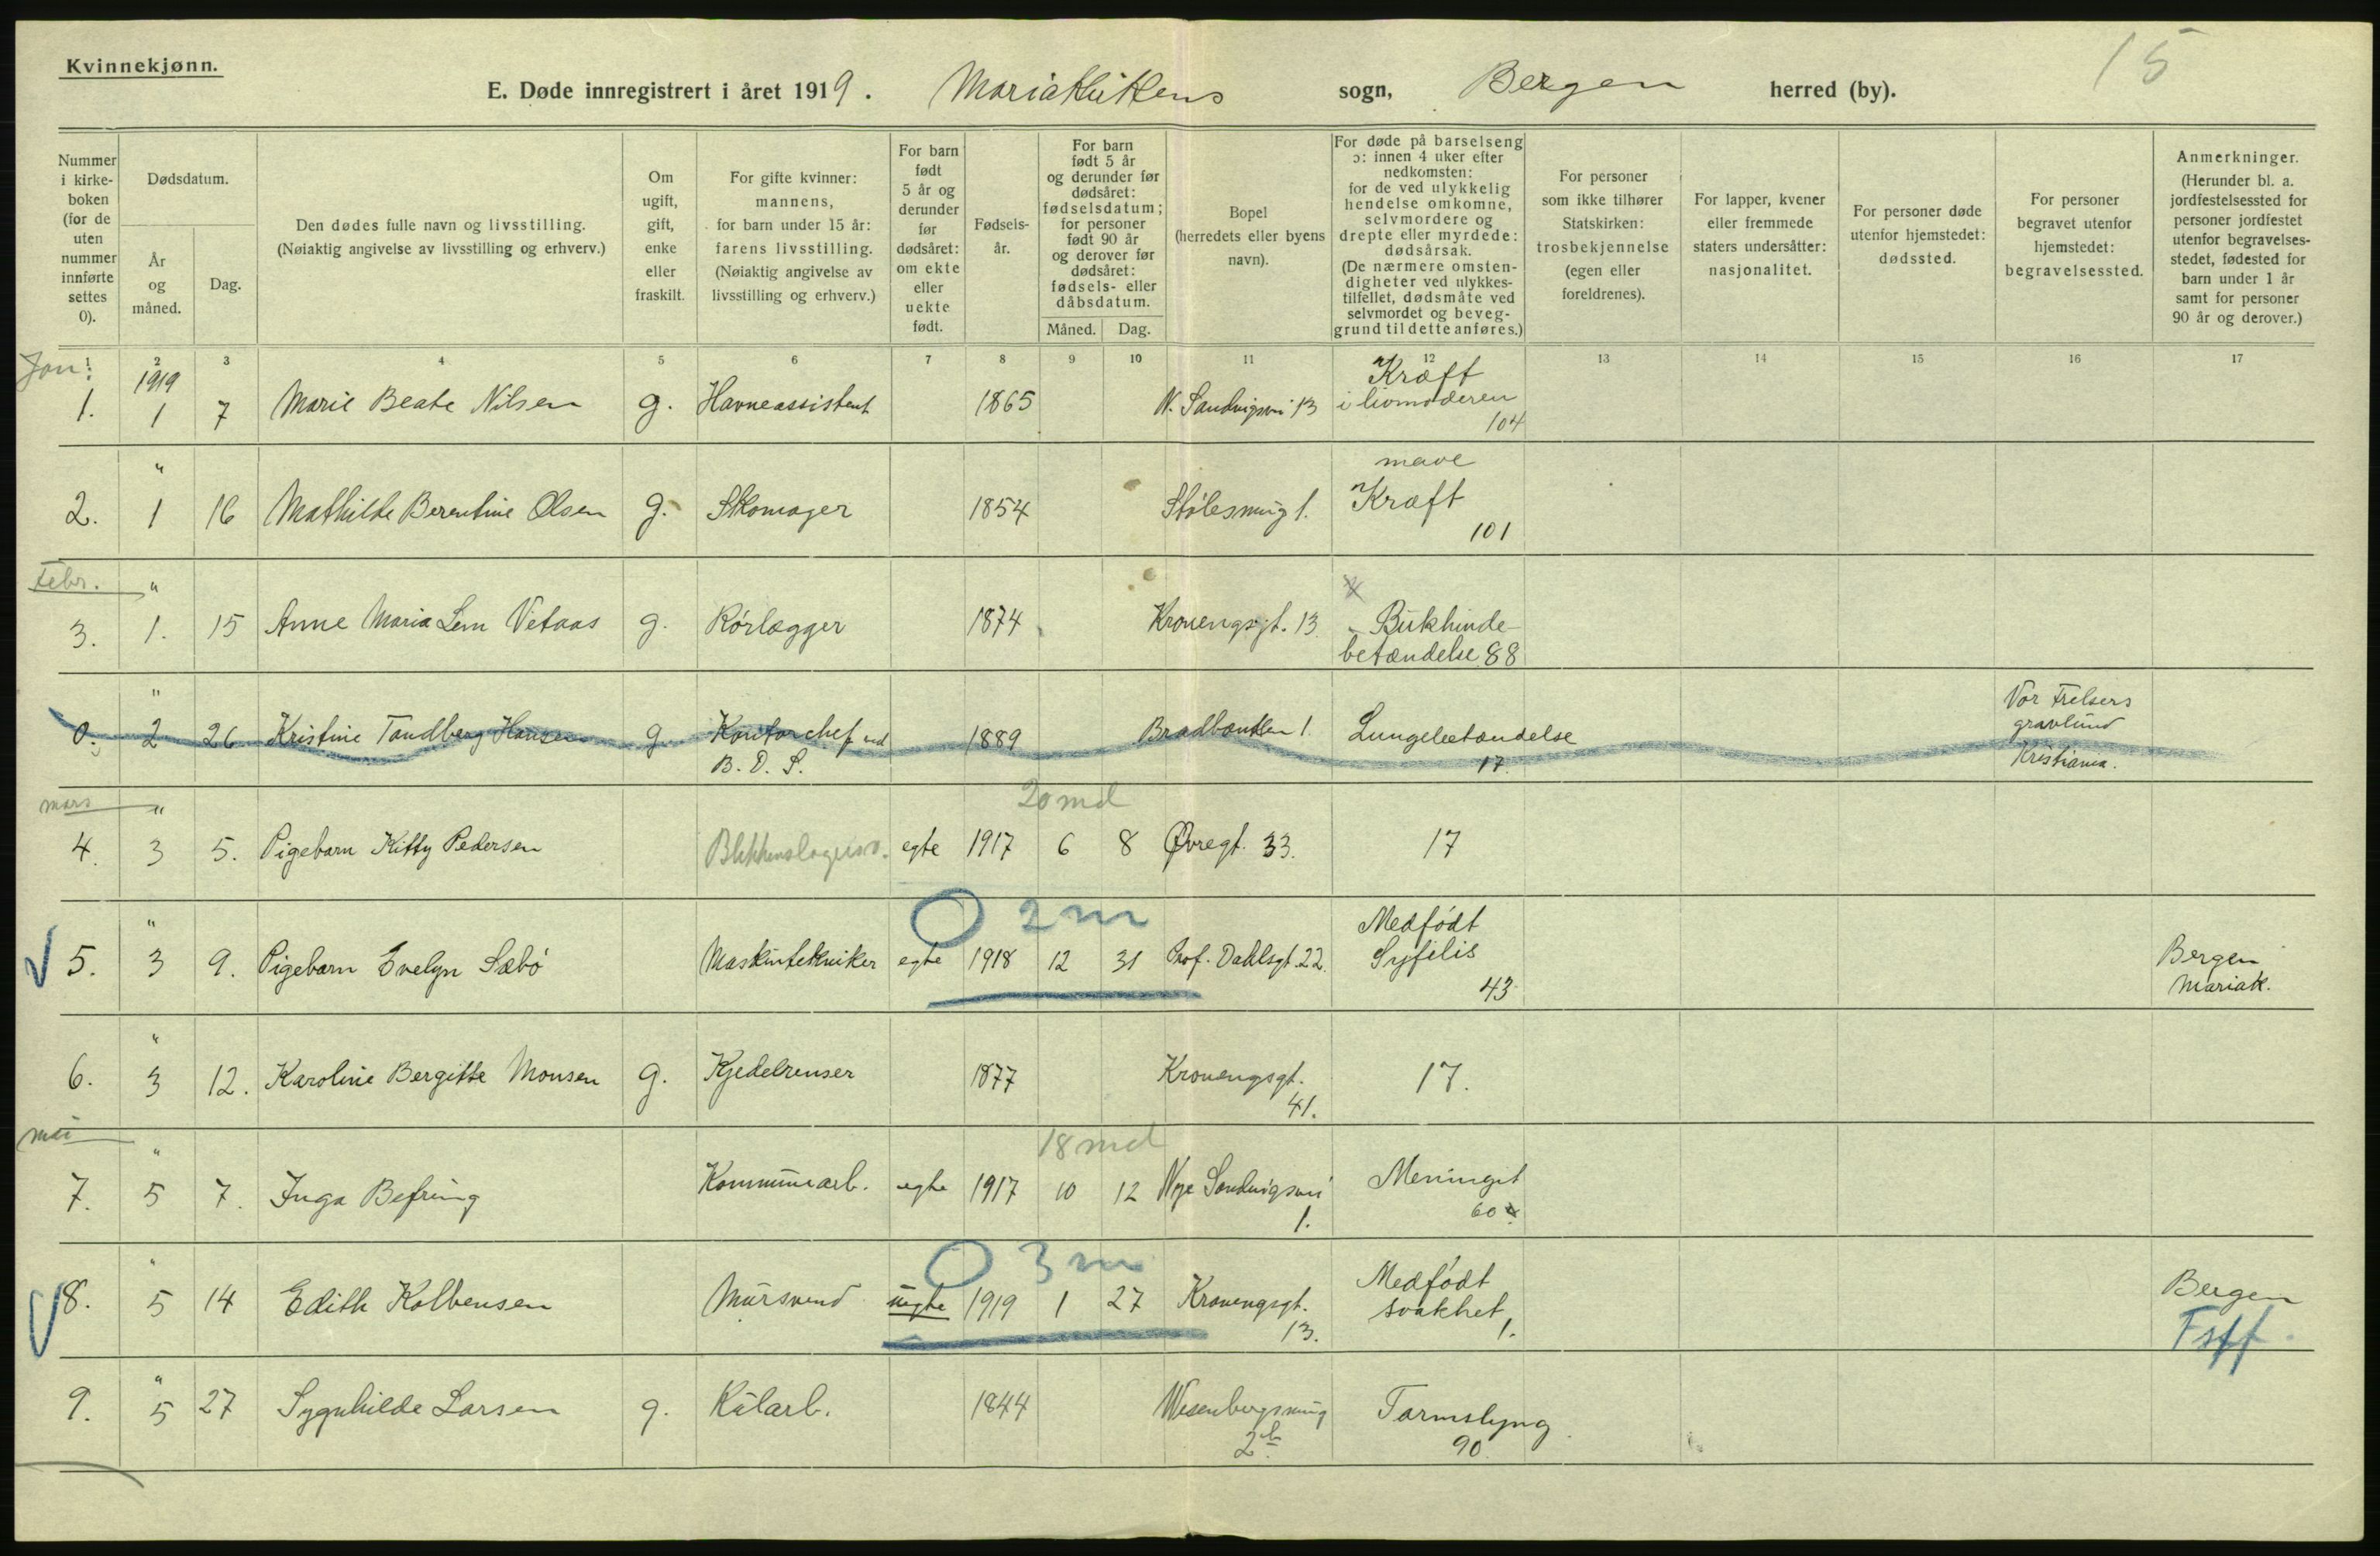 Kvinnekjønn.
15
E. Døde innregistrert i året 1919. Mariakirkens sogn, Bergen herred (by).
Nummer i kirke-boken (for de uten nummer innførte settes 0).
Dødsdatum.
År og måned.
Dag.
Den dødes fulle navn og livsstilling.
(Nøiaktig angivelse av livsstilling og erhverv.)
Om ugift, gift, enke eller fraskilt.
For gifte kvinner: mannens, for barn under 15 år: farens livsstilling. (Nøiaktig angivelse av livsstilling og erhverv.)
For barn født 5 år og derunder før dødsåret: om ekte eller uekte født.
Fødsels-år.
For barn født 5 år og derunder før dødsåret: fødselsdatum; for personer født 90 år og derover før dødsåret: fødsels- eller dåbsdatum.
Måned. Dag.
Bopel (herredets eller byens navn).
For døde på barselseng ɔ: innen 4 uker efter nedkomsten: for de ved ulykkelig hendelse omkomne, selvmordere og drepte eller myrdede: dødsårsak. (De nærmere omsten-digheter ved ulykkes-tilfellet, dødsmåte ved selvmordet og beveg-grund til dette anføres.)
For personer som ikke tilhører Statskirken: trosbekjennelse (egen eller foreldrenes).
For lapper, kvener eller fremmede staters undersåtter: nasjonalitet.
For personer døde utenfor hjemstedet: dødssted.
For personer begravet utenfor hjemstedet: begravelsessted.
Anmerkninger. (Herunder bl. a. jordfestelsessted for personer jordfestet utenfor begravelses-stedet, fødested for barn under 1 år samt for personer 90 år og derover.)
1 2 3 4 5 6 7 8 9 10 11 12 13 14 15 16 17
Jan:
1919
1. 1 7 Marie Beate Nilsen g. Havneassistent 1865 N. Sandvigsvei 13 Kræft i livmoderen 104
"
2. 1 16 Mathilde Berentine Olsen g. Skomager 1854 Stølesmug 1. mave Kræft 101
Febr. "
3. 1. 15 Anne Maria Lem Vetaas g. Rörlægger 1874 Kronengsgt. 13. Bukhinde betændelse 88
"
0. 2 26 Kristine Tandberg Hansen g. Kontorchef ved B. D. S. 1889 Bradbænken 1. Lungebetændelse 17. Vor Frelsers gravlund Kristiania.
mars "
20 md
4. 3 5. Pigebarn Kitty Pedersen Blikkenslagersv. egte 1917 6 8 Øvregt. 33. 17
O 2 m
"
5. 3 9. Pigebarn Evelyn Sæbö Maskintekniker egte 1918 12 31 Prof. Dahlsgt. 22. Medfödt Syfilis 43 Bergen Mariak.
"
6. 3 12. Karoline Bergitte Monsen g. Kjedelrenser 1877 Kronengsgt. 41. 17.
mai "
18 md
7. 5 7. Inga Befring Kommunearb. egte 1917 10 12 Nye Sandvigsvei 1. Meningit 60
O 3 m
"
8. 5 14 Edith Kolbensen Mursvend uegte 1919 1 27 Kronengsgt. 13. Medfödt svakhet 1. Bergen
"
9. 5 27 Sygnhilde Larsen g. Kularb. 1844 Wesenbergsmug 2b Tarmslyng 90.